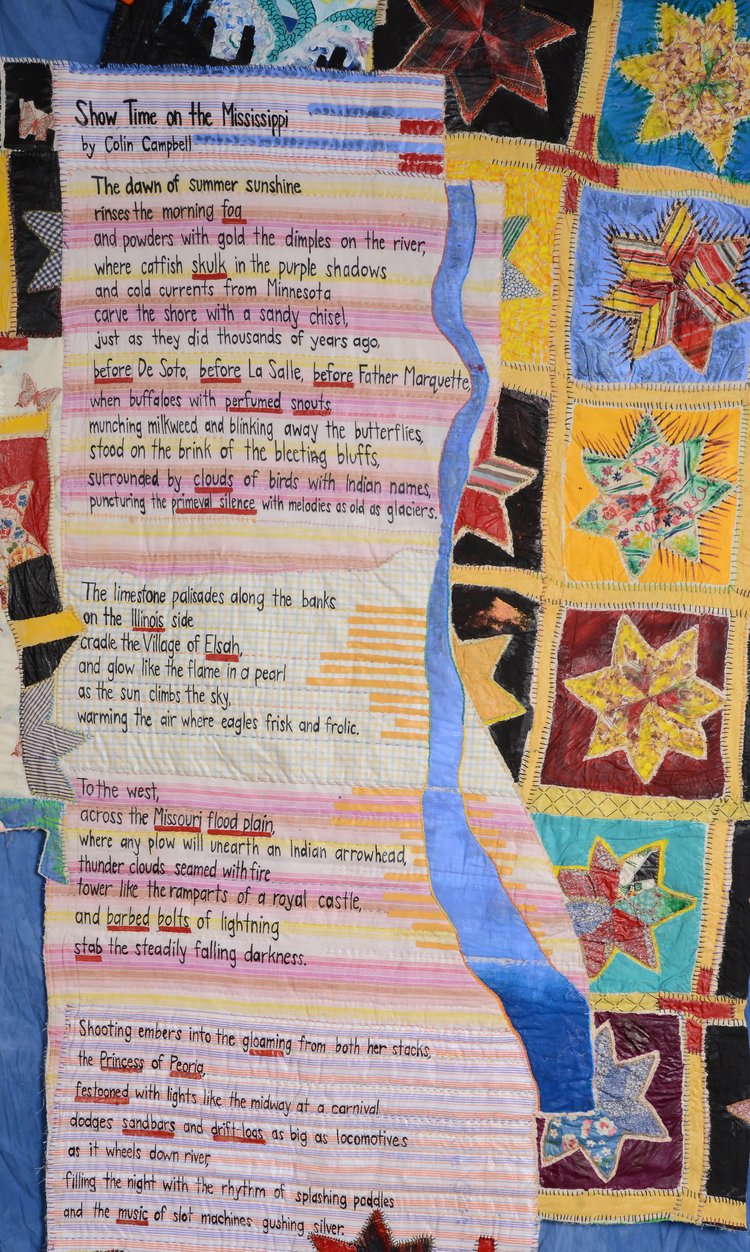 Show Time on the Mississippi
by Colin Campbell
The dawn of summer sunshine
rinses the morning fog
and powders with gold the dimples on the river,
where catfish skulk in the purple shadows
and cold currents from Minnesota
carve the shore with a sandy chisel,
just as they did thousands of years ago,
before De Soto, before La Salle, before Father Marquette,
when buffaloes with perfumed snouts,
munching milkweed and blinking away the butterflies,
stood on the brink of the bleeting bluffs,
surrounded by clouds of birds with Indian names,
puncturing the primeval silence with melodies as old as glaciers.
The limestone palisades along the banks
on the Illinois side
cradle the Village of Elsah,
and glow like the flame in a pearl
as the sun climbs the sky,
warming the air where eagles frisk and frolic.
To the west,
across the Missouri flood plain,
where any plow will unearth an Indian arrowhead,
thunder clouds seamed with fire
tower like the ramparts of a royal castle,
and barbed bolts of lightning
stab the steadily falling darkness.
Shooting embers into the gloaming from both her stacks,
the Princess of Peoria,
festooned with lights like the midway at a carnival
dodges sandbars and drift logs as big as locomotives
as it wheels down river,
filling the night with the rhythm of splashing paddles
and the music of slot machines gushing silver.